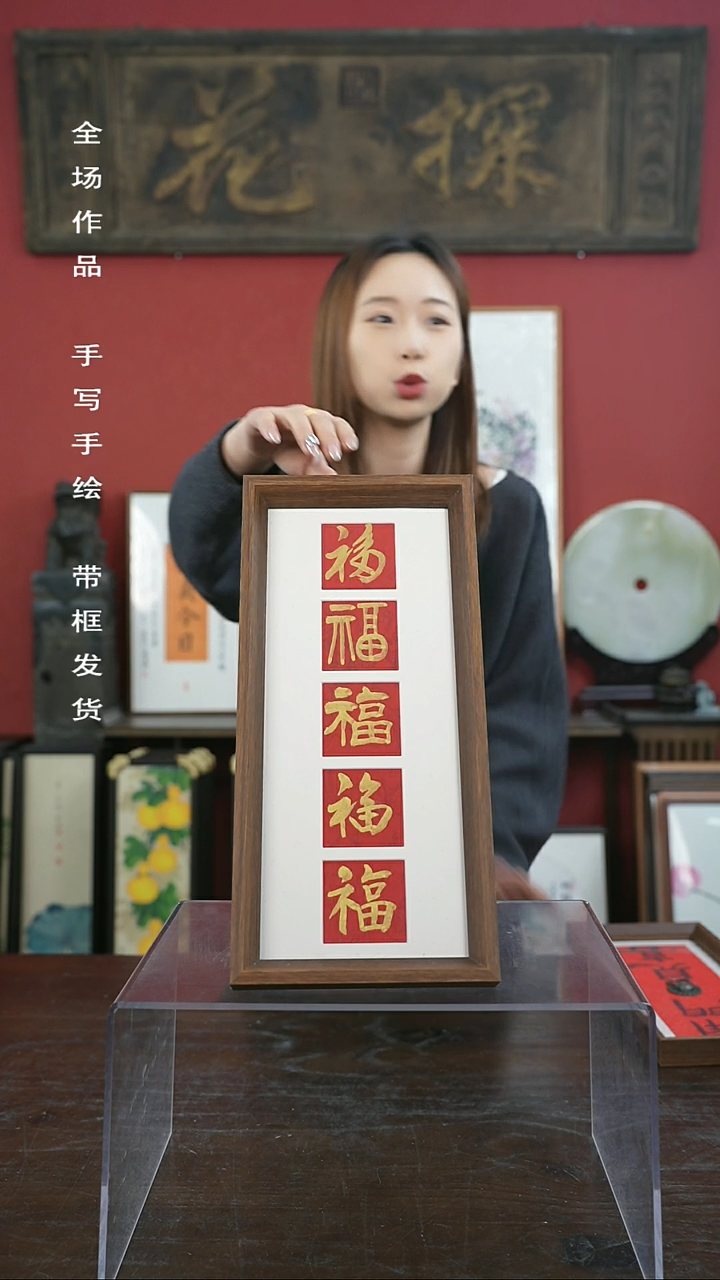 探花
全场作品 手写手绘 带框发货
福
福
福
福
福